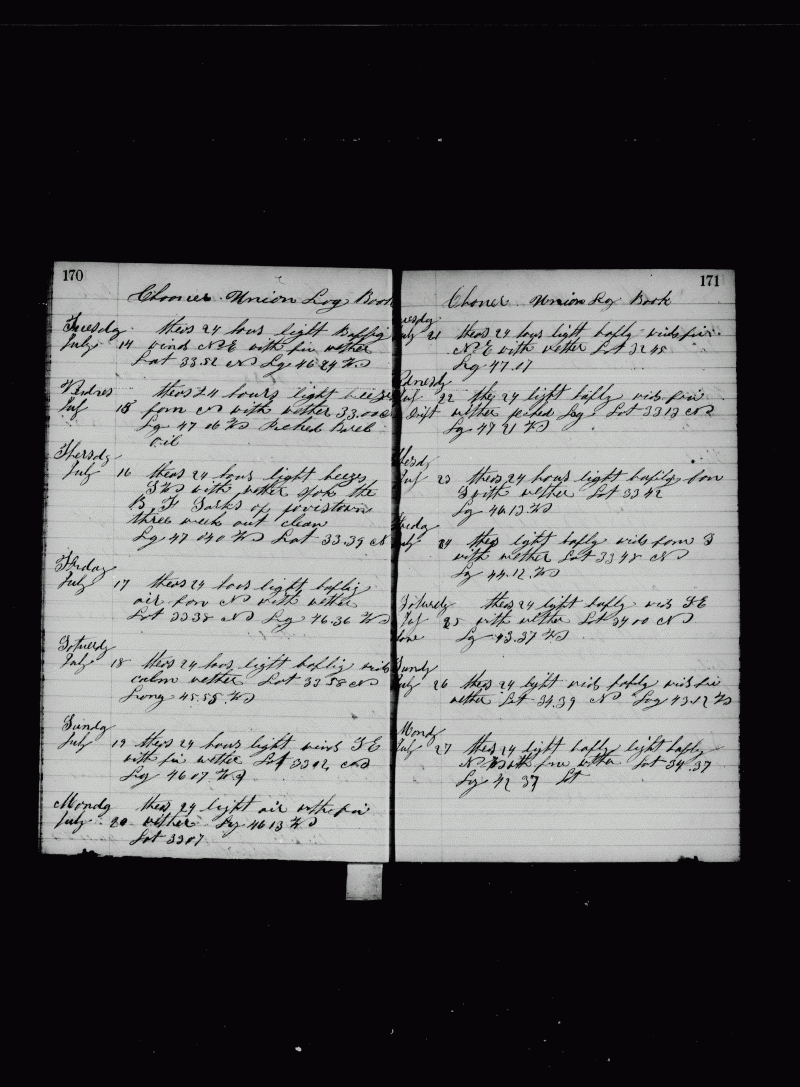 170
Choner Union Log Book
Tuesdg theas 24 hous light Bafflig
July 14 winds N E with fin wether
Lat 33.52 N Lg 46 24 W
Wednes theas 24 hours light breizes
July 15 forn N with wether 33.00
Lg 47 06 W Picked
oil
Thersdg
July 16 theas 24 hous light breezs
S W with wether spok the
B, F Sarks of provistown
three week out clean
Lg 47 040 W Lat 33.39 N
Friday
July 17 theas 24 hous light baflig
air forn N with wether
Lat 33 38 N Lg 46.36 W
Soturdy
July 18 theas 24 hous light baflig wids
calm wether Lat 33 58 N
Long 45.55 W
Sundg
July 19 theas 24 hous light winds S E
with fin wether Lat 33 02 N
Lg 46 07 W
Mondg theas 24 light air with fin
July 20 wether Lg 46 13 W
Lat 33 07
171
Choner Union Log Book
uesdg
July 21 theas 24 hous light bafly wids fin
N E with wether Lat 32 45
Lrg 47.17
ednesdy
July 22 they 24 light bafly wids fin
Drift wether picked Lat 33 13 N
Lg 47 21 W
hesdy
July 23 theas 24 hous light baflig forn
S with wether Lat 33 42
Lg 46.13. W
Fridg
July 24 theas light bafly wids forn S
with wether Lat 33 48 N
Lg 44.12. W
Soturdy theas 24 light bafly wids S E
July 25 with wether Lat 34 00 N
Lg 43.37 W
Sundy
July 26 theas 24 light wids bafly wids fin
wether Lat 34.39 N Log 43.12 W
Mondy
July 27 theas 24 light bafly light bafly
N W with fin wether Lat 34.37
Lg 42 37 Lt